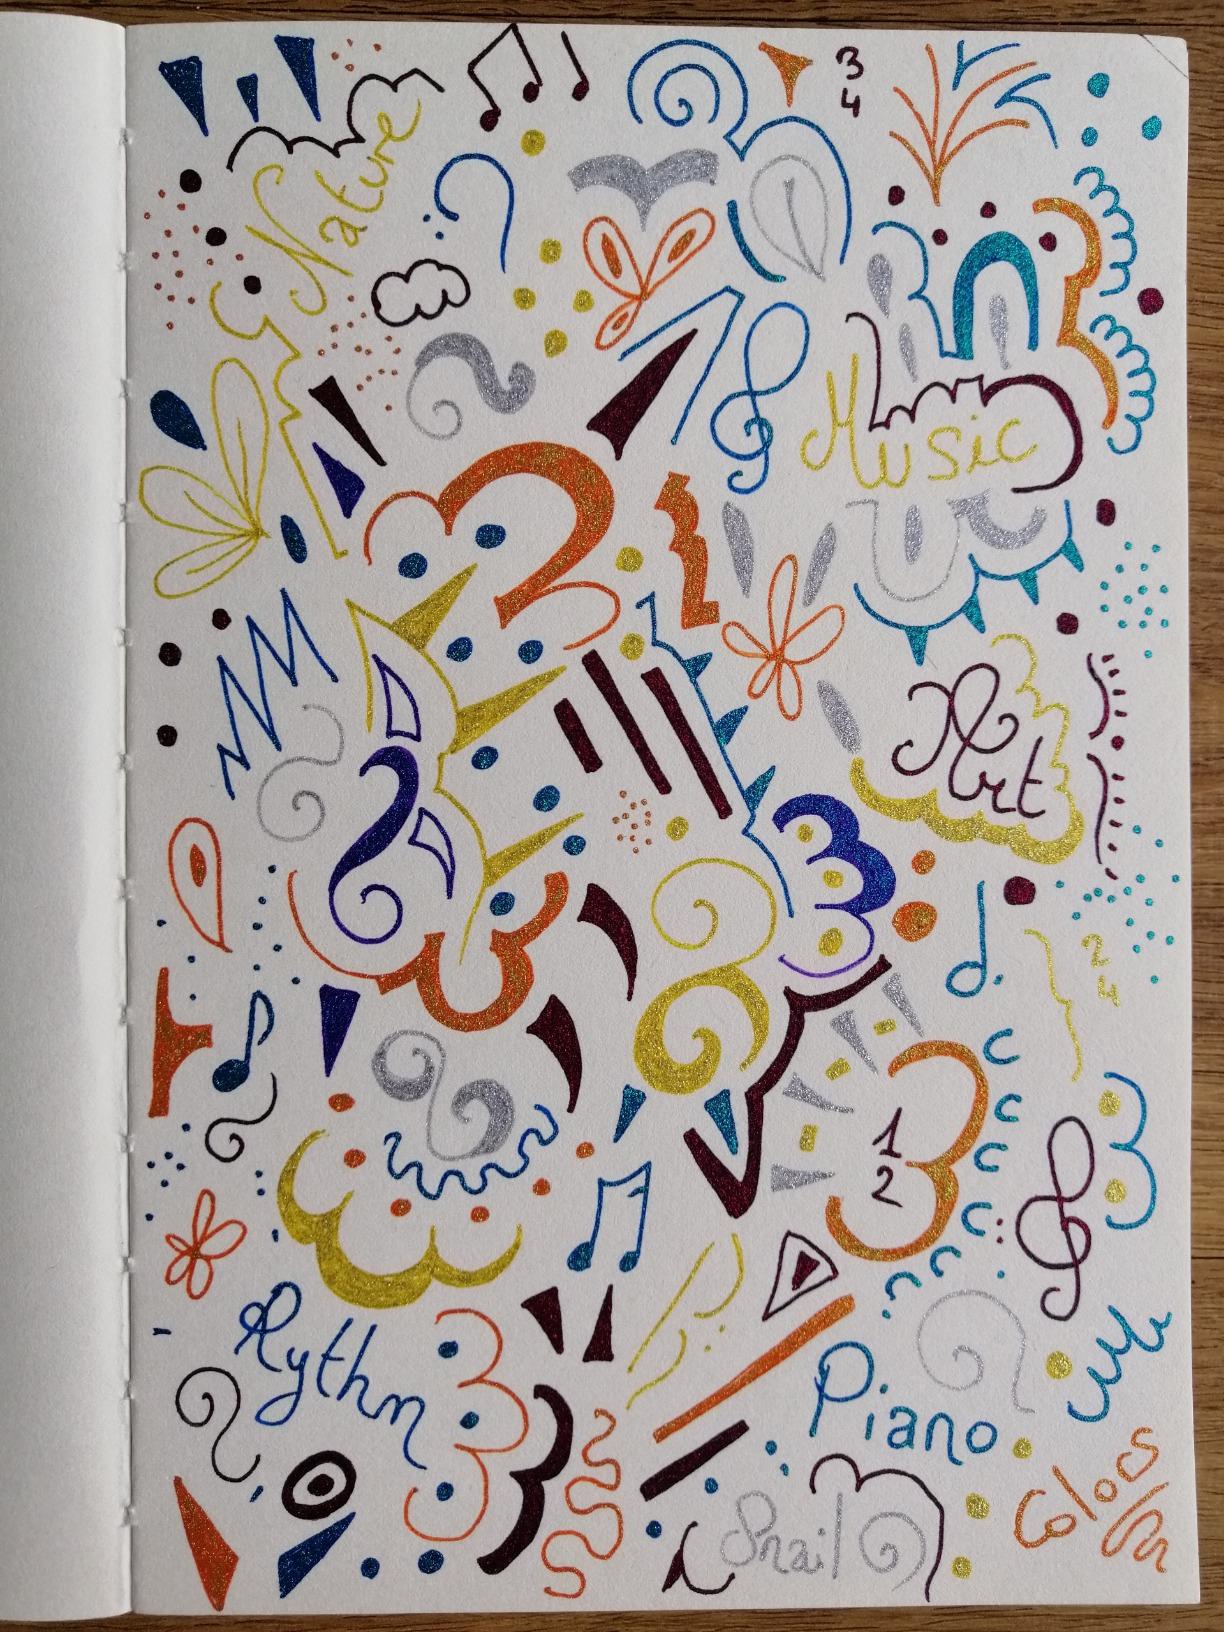 3
4
Nature
Music
Art
2
4
1
2
Rythm
Piano
Colors
Snail